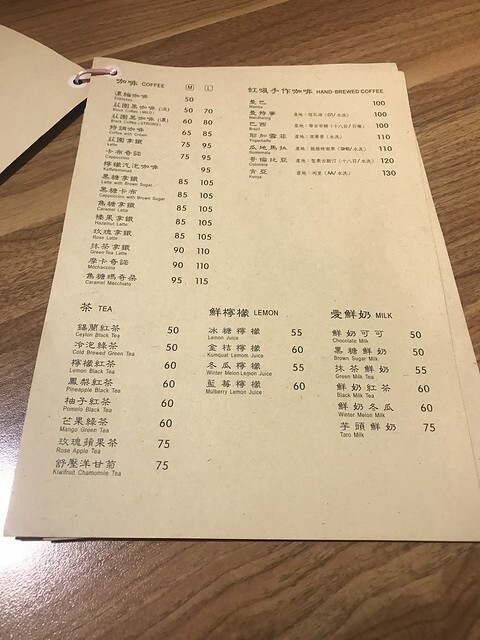 咖啡 COFFEE M L
濃縮咖啡 50
Espresso
莊園黑咖啡 (淡) 50 70
Black Coffee (MILD)
莊園黑咖啡 (濃) 60 80
Black Coffee (STRONG)
特調咖啡 65 85
Coffee with Cream
莊園拿鐵 75 95
Latte
卡布奇諾 75 95
Cappuccino
檸檬汽泡咖啡 95
黑糖拿鐵 85 105
Latte with Brown Sugar
黑糖卡布 85 105
Cappuccino with Brown Sugar
焦糖拿鐵 85 105
Caramel Latte
榛果拿鐵 85 105
Hazelnut Latte
玫瑰拿鐵 85 105
Rose Latte
抹茶拿鐵 90 110
Green Tea Latte
摩卡奇諾 90 110
Mochaccino
焦糖瑪奇朵 95 115
Caramel Macchiato
虹吸手作咖啡 HAND-BREWED COFFEE
曼巴 100
Mamba
曼特寧 產地: (G1/水洗) 100
Mandheling
巴西 產地: (十八目/日曬) 100
Brazil
耶加雪菲 產地: (G1/水洗) 110
Yirgacheffe
瓜地馬拉 產地: (SHB/水洗) 110
Guatemala
哥倫比亞 產地: (十八目/水洗) 120
Colombia
肯亞 產地: (AA/水洗) 130
Kenya
茶 TEA
錫蘭紅茶 50
Ceylon Black Tea
冷泡綠茶 50
Cold Brewed Green Tea
檸檬紅茶 60
Lemon Black Tea
鳳梨紅茶 60
Pineapple Black Tea
柚子紅茶 60
Pomelo Black Tea
芒果綠茶 60
Mango Green Tea
玫瑰蘋果茶 75
Rose Apple Tea
舒壓洋甘菊 75
Kiwifruit Chamomile Tea
鮮檸檬 LEMON
冰糖檸檬 55
Lemon Juice
金桔檸檬 60
Kumquat Lemom Juice
冬瓜檸檬 55
Winter Melon Lepion Juice
藍莓檸檬 60
Mulberry Lemon Juice
愛鮮奶 MILK
鮮奶可可 50
Chocolate Milk
黑糖鮮奶 50
Brown Sugar Milk
抹茶鮮奶 55
Green Milk Tea
鮮奶紅茶 60
Black Milk Tea
鮮奶冬瓜 60
Winter Melon Milk
芋頭鮮奶 75
Taro Milk